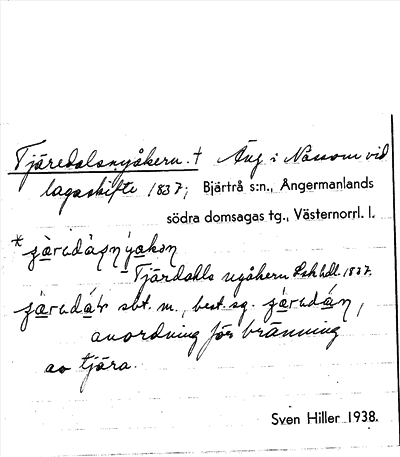 Tjäredalsnyåkern. † Äng i Nässom vid
lagaskifte 1837; Bjärtrå s:n., Ångermanlands
södra domsagas tg., Västernorrl. l.
Tjärdahls nyåkern Lskhdl. 1837.
sbt. m., best. sg.
anordning för bränning
av tjära.
Sven Hiller 1938.